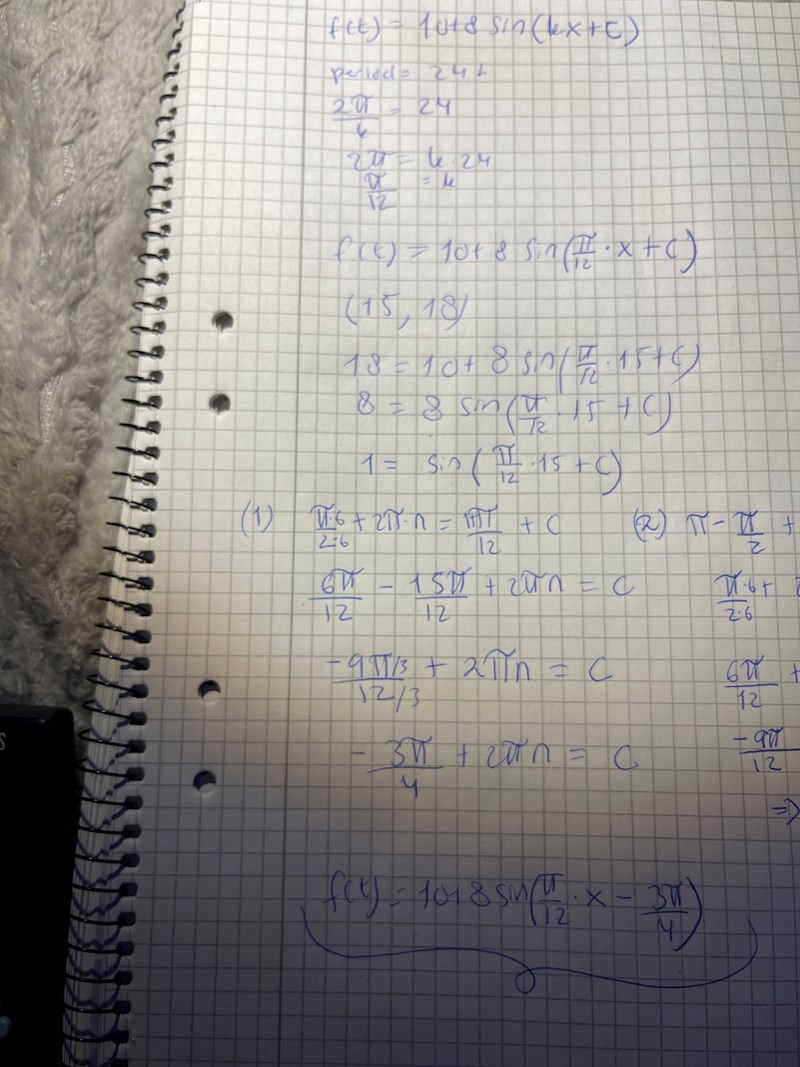 f(t) = 10+8 sin(kx+C)
period = 24 h
2π/k = 24
2π = k·24
π/12 = k
f(t) = 10+8 sin(π/12 · x + C)
(15, 18)
18 = 10+ 8 sin(π/12 · 15 + C)
8 = 8 sin(π/12 · 15 + C)
1 = sin(π/12 · 15 + C)
(1) π·6/2·6 + 2π·n = 15π/12 + C (2) π - π/2 +
6π/12 - 15π/12 + 2πn = C π·6/2·6 +
-9π/3/12/3 + 2πn = C 6π/12 +
- 3π/4 + 2πn = C -9π/12
⇒
f(t) = 10+8 sin(π/12 · x - 3π/4)